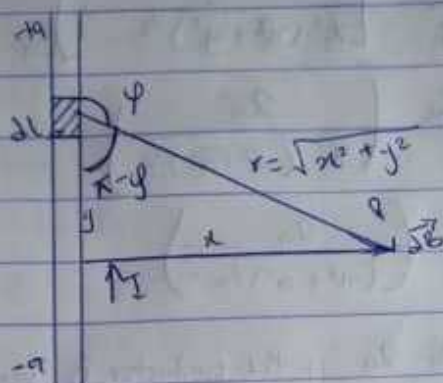 +a
φ
dl
r = √x² + y²
π-φ
y
x
P
I
-a